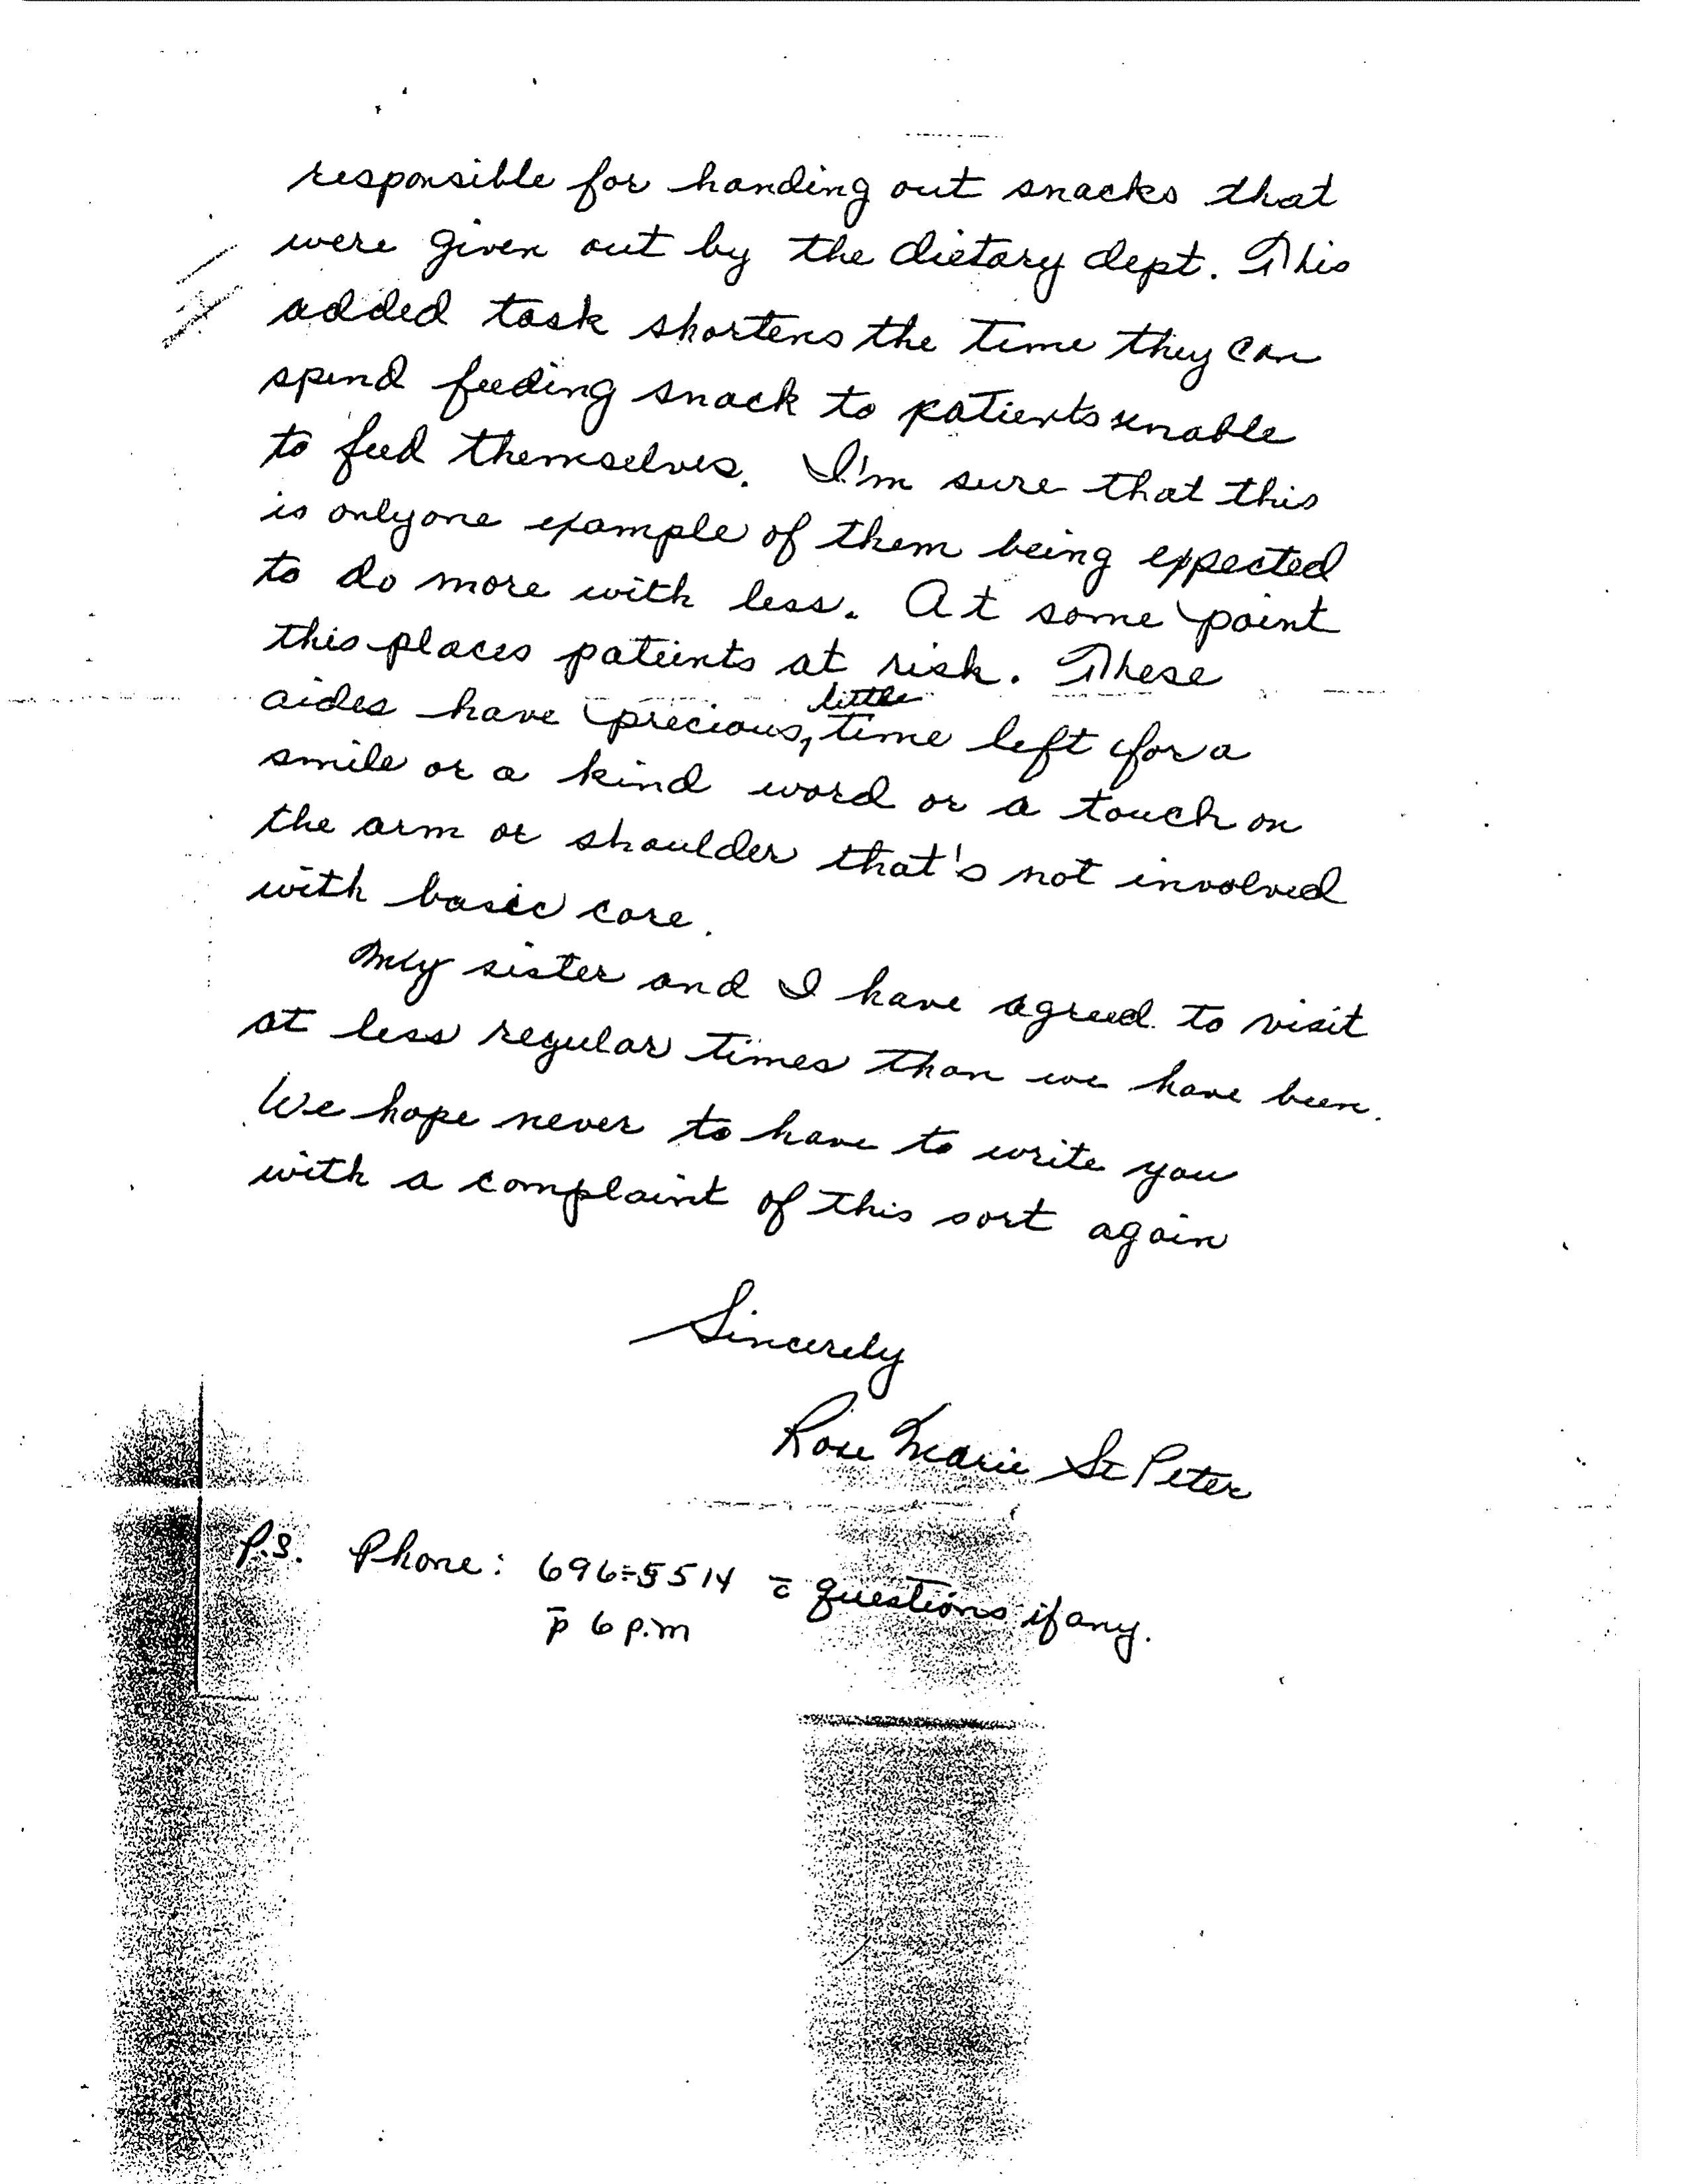 responsible for handing out snacks that
were given out by the dietary dept. This
added task shortens the time they can
spend feeding snack to patients unable
to feed themselves. I'm sure that this
is only one example of them being expected
to do more with less. At some point
this places patients at risk. These
aides have precious, little time left for a
smile or a kind word or a touch on
the arm or shoulder that's not involved
with basic care.
My sister and I have agreed to visit
at less regular times than we have been.
We hope never to have to write you
with a complaint of this sort again
Sincerely
Rose Marie St Peter
P.S. Phone: 696-5514 c̄ questions if any.
p̄ 6 p.m